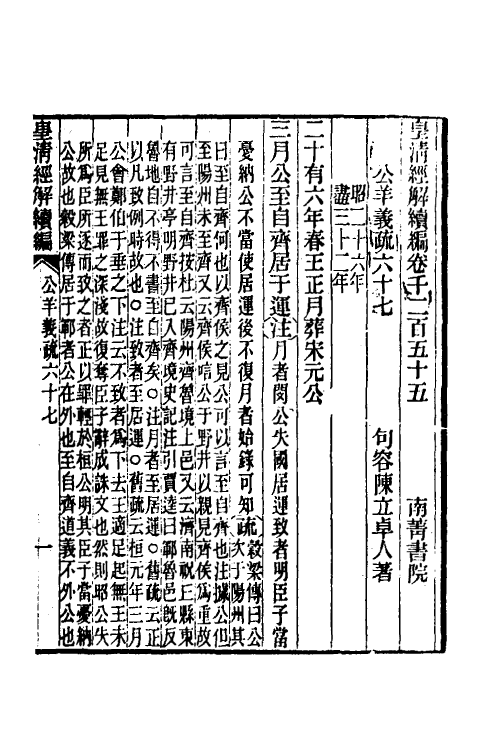 皇清經解續編卷千二百五十五　南菁書院
公羊義疏六十七　句容陳立卓人著
昭二十六年
盡三十二年
二十有六年春王正月葬宋元公
三月公至自齊居于運注月者閔公失國居運致者明臣子當
憂納公不當使居運後不復月者始錄可知疏穀梁傳曰公次于陽州其
曰至自齊何也以齊侯之見公可以言至自齊也注據公但
至陽州未至齊又云齊侯唁公于野井以親見齊侯爲重故
可言至自齊按杜云陽州齊魯境上邑又云濟南祝丘縣東
有野井亭明野井已入齊境史記注引賈逵曰鄆魯邑旣反
魯地自不得不書至自齊矣○注月者至居運○舊疏云正
以凡致例時故也○注致者至居運○舊疏云桓元年三月
公會鄭伯于垂之下注云不致者爲下去王適足起無王未
足見無王罪之深淺故復奪臣子辭成誅文也然則耶公失
所爲臣所逐而致之者正以罪輕於桓公明其臣于當憂納
公故也穀梁傳居于鄆者公在外也至自齊道義不外公也
皇清經解續編　公羊義疏六十七　一